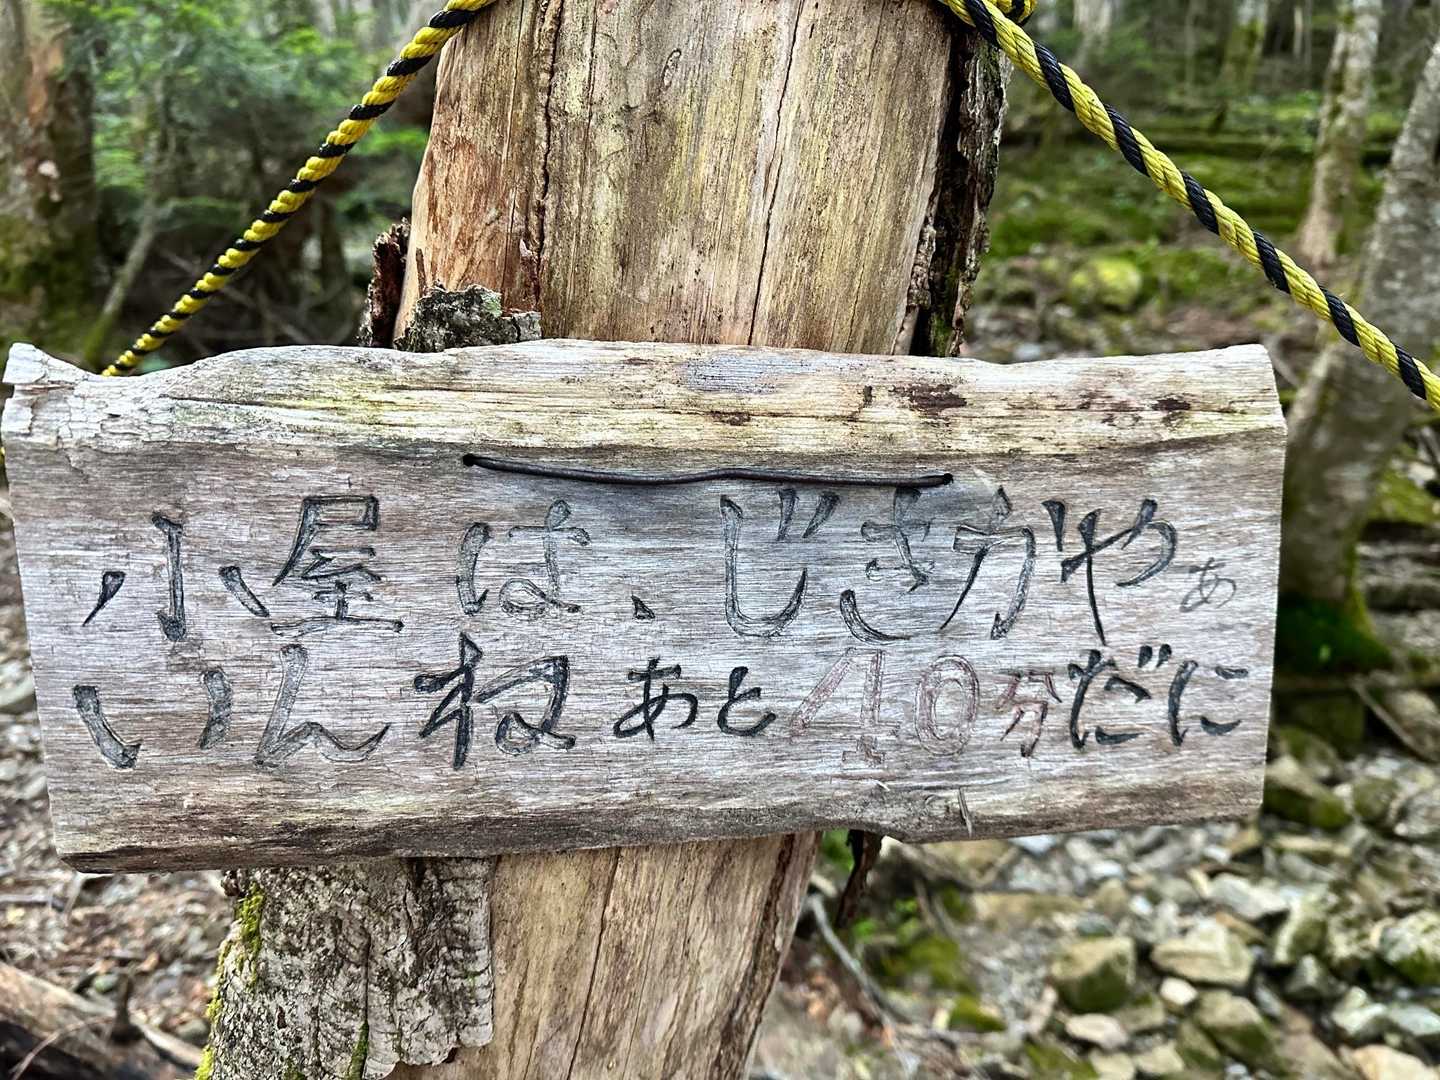 小屋は、じきかやぁ
いんねあと40分だに